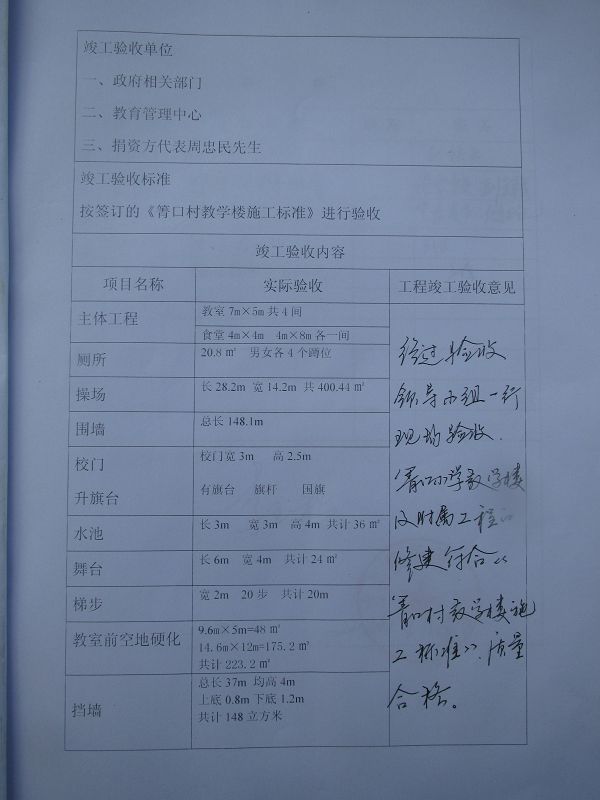 竣工验收单位
一、政府相关部门
二、教育管理中心
三、捐资方代表周忠民先生
竣工验收标准
按签订的《箐口村教学楼施工标准》进行验收
竣工验收内容
项目名称 实际验收 工程竣工验收意见
主体工程 教室 7m×5m 共 4 间
食堂 4m×4m 4m×8m 各一间
厕所 20.8 ㎡ 男女各 4 个蹲位
操场 长 28.2m 宽 14.2m 共 400.44 ㎡
围墙 总长 148.1m
校门 校门宽 3m 高 2.5m
升旗台 有旗台 旗杆 国旗
水池 长 3m 宽 3m 高 4m 共计 36 ㎡
舞台 长 6m 宽 4m 共计 24 ㎡
梯步 宽 2m 20 步 共计 20m
教室前空地硬化 9.6m×5m=48 ㎡
14.6m×12m=175.2 ㎡
共计 223.2 ㎡
挡墙 总长 37m 均高 4m
上底 0.8m 下底 1.2m
共计 148 立方米
经过验收
领导小组一行
现场验收.
箐口小学教学楼
及附属工程
修建符合《
箐口村教学楼施
工标准》.质量
合格。